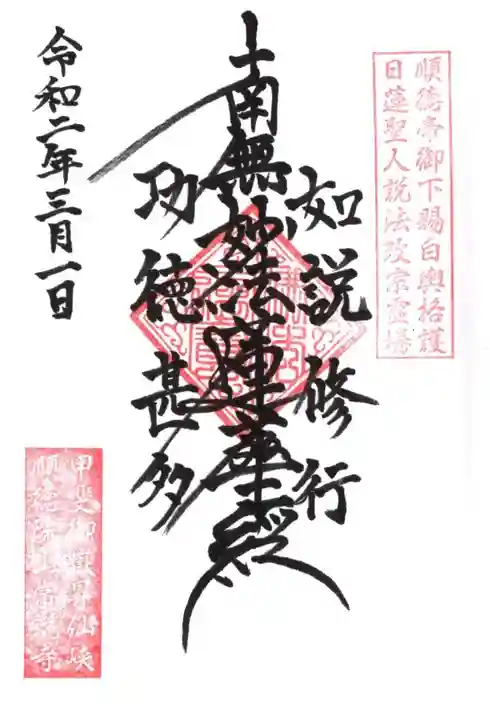 順徳帝御下賜白輿格護
日蓮聖人説法改宗霊場
如説修行
南無妙法蓮華経
功徳甚多
令和二年三月一日
甲斐御嶽昇仙峡